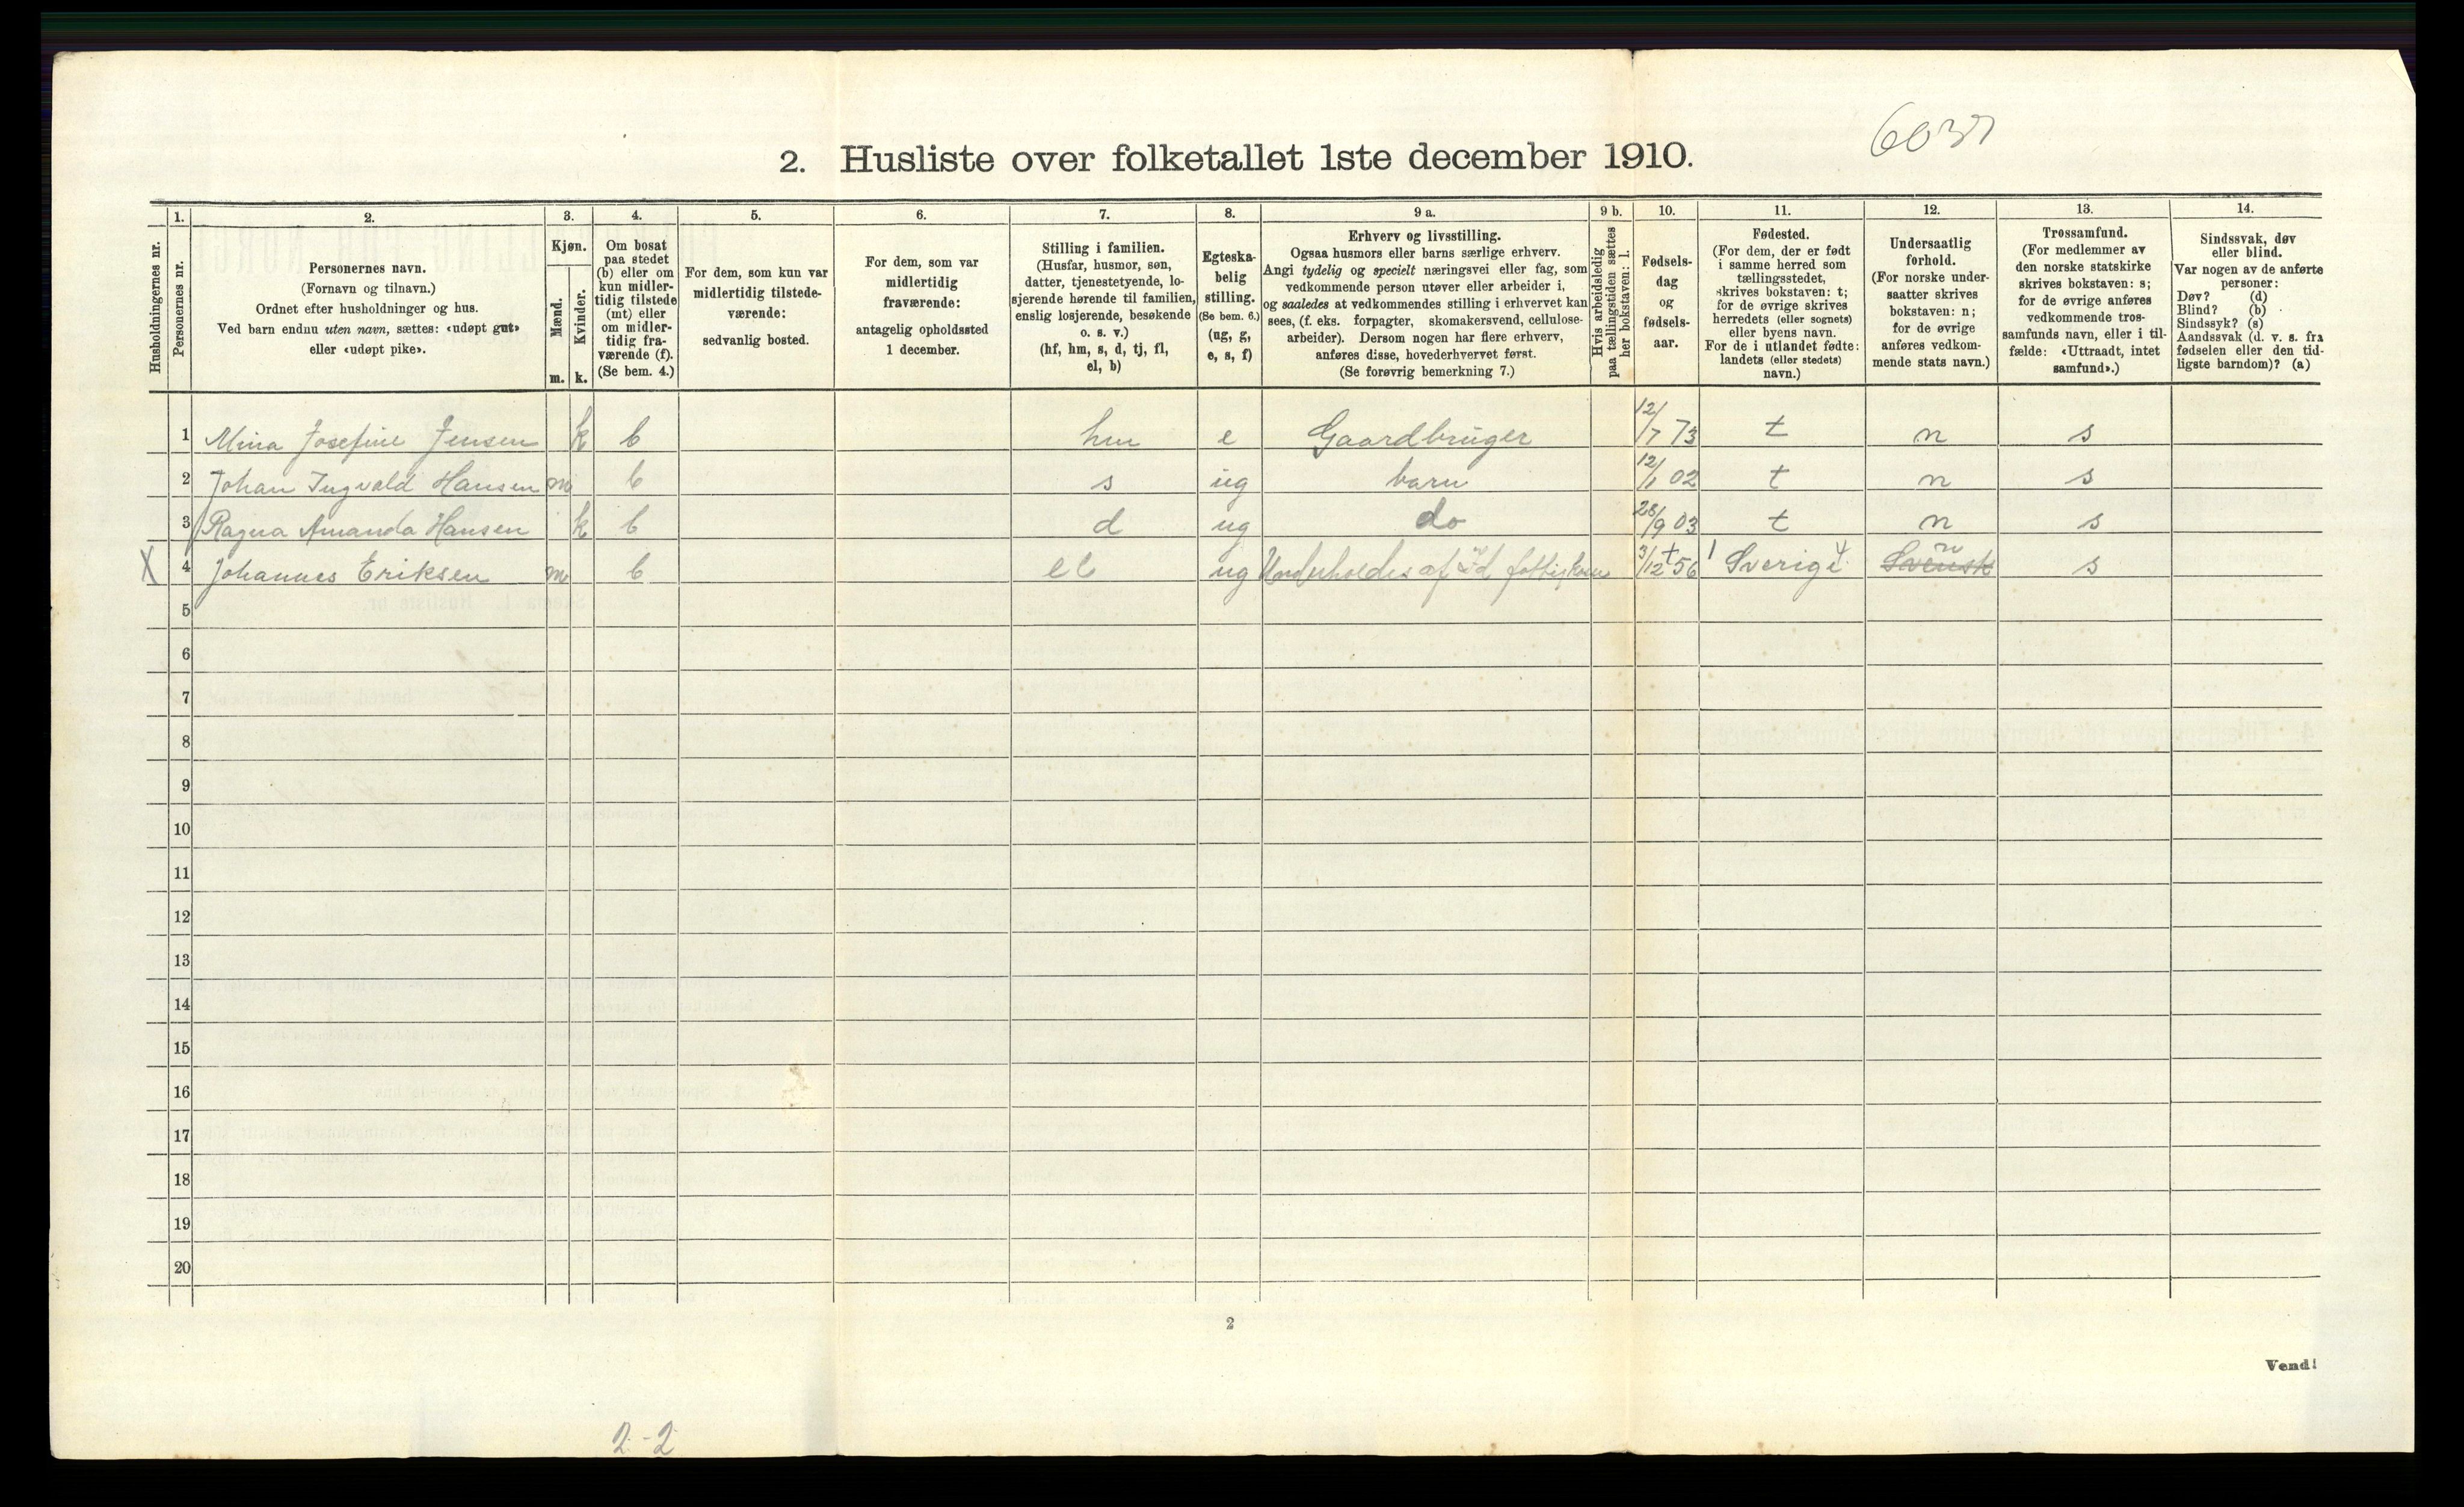 6037
2. Husliste over folketallet 1ste december 1910.
Husholdningernes nr.
1.
Personernes nr.
2.
Personernes navn.
(Fornavn og tilnavn.)
Ordnet efter husholdninger og hus.
Ved barn endnu uten navn, sættes: «udøpt gut»
eller «udøpt pike».
3.
Kjøn.
Mænd.
m.
Kvinder.
k.
4.
Om bosat
paa stedet
(b) eller om
kun midler-
tidig tilstede
(mt) eller
om midler-
tidig fra-
værende (f).
(Se bem. 4.)
5.
For dem, som kun var
midlertidig tilstede-
værende:
sedvanlig bosted.
6.
For dem, som var
midlertidig
fraværende:
antagelig opholdssted
1 december.
7.
Stilling i familien.
(Husfar, husmor, søn,
datter, tjenestetyende, lo-
sjerende hørende til familien,
enslig losjerende, besøkende
o. s. v.)
(hf, hm, s, d, tj, fl,
el, b)
8.
Egteska-
belig
stilling.
(Se bem. 6.)
(ug, g,
e, s, f)
9 a.
Erhverv og livsstilling.
Ogsaa husmors eller barns særlige erhverv.
Angi tydelig og specielt næringsvei eller fag, som
vedkommende person utøver eller arbeider i,
og saaledes at vedkommendes stilling i erhvervet kan
sees, (f. eks. forpagter, skomakersvend, cellulose-
arbeider). Dersom nogen har flere erhverv,
anføres disse, hovederhvervet først.
(Se forøvrig bemerkning 7.)
9 b.
Hvis arbeidsledig
paa tællingstiden sættes
her bokstaven: l.
10.
Fødsels-
dag
og
fødsels-
aar.
11.
Fødested.
(For dem, der er født
i samme herred som
tællingsstedet,
skrives bokstaven: t;
for de øvrige skrives
herredets (eller sognets)
eller byens navn.
For de i utlandet fødte:
landets (eller stedets)
navn.)
12.
Undersaatlig
forhold.
(For norske under-
saatter skrives
bokstaven: n;
for de øvrige
anføres vedkom-
mende stats navn.)
13.
Trossamfund.
(For medlemmer av
den norske statskirke
skrives bokstaven: s;
for de øvrige anføres
vedkommende tros-
samfunds navn, eller i til-
fælde: «Uttraadt, intet
samfund».)
14.
Sindssvak, døv
eller blind.
Var nogen av de anførte
personer:
Døv? (d)
Blind? (b)
Sindssyk? (s)
Aandssvak (d. v. s. fra
fødselen eller den tid-
ligste barndom)? (a)
1 Mina Josefine Jensen k b hm e Gaardbruger 12/7 73 t n s
2 Johan Ingvald Hansen m b s ug barn 12/1 02 t n s
3 Ragna Amanda Hansen k b d ug do 28/9 03 t n s
X 4 Johannes Eriksen m b el ug Underholdes af fattigkom 3/12 56 Sverige Svensk n s
5
6
7
8
9
10
11
12
13
14
15
16
17
18
19
20
2
Vend!
2-2